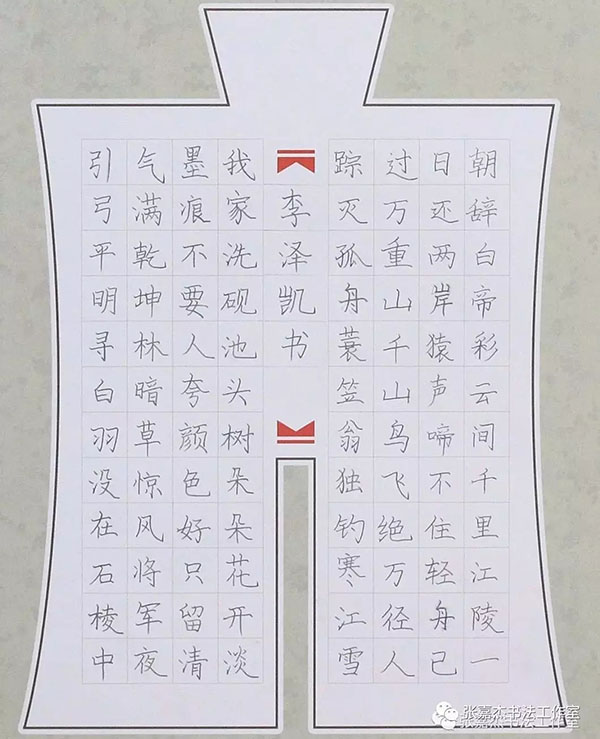 朝辞白帝彩云间千里江陵一
日还两岸猿声啼不住轻舟已
过万重山千山鸟飞绝万径人
踪灭孤舟蓑笠翁独钓寒江雪
李泽凯书
我家洗砚池头树朵朵花开淡
墨痕不要人夸颜色好只留清
气满乾坤林暗草惊风将军夜
引弓平明寻白羽没在石棱中
张嘉杰书法工作室